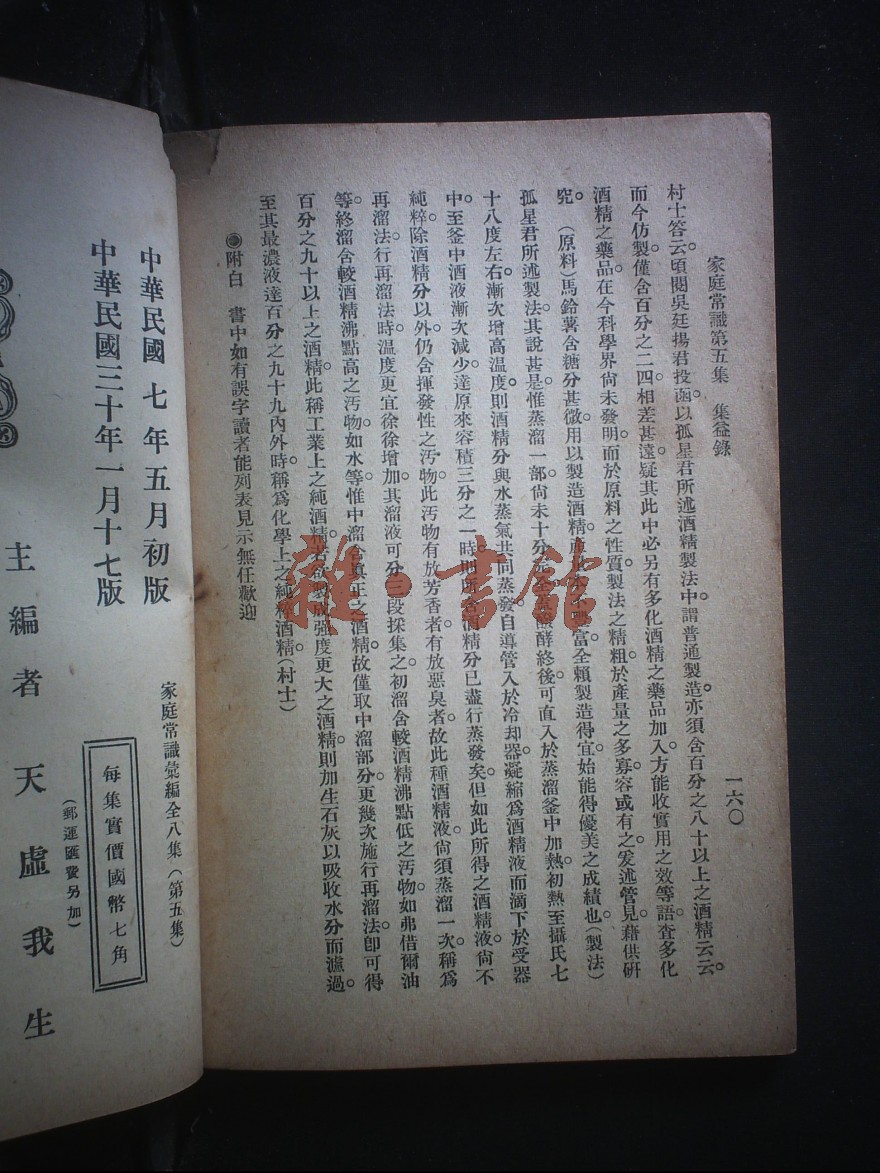 家庭常識第五集　集益錄
一六〇
村士答云。頃閱吳廷揚君投函。以孤星君所述酒精製法中。謂普通製造。亦須含百分之八十以上之酒精云云。
而今仿製僅含百分之二四相差甚遠。疑其此中必另有多化酒精之藥品加入。方能收實用之效等語。查多化
酒精之藥品。在今科學界尙未發明。而於原料之性質。製法之精粗。於產量之多寡。容或有之。爰述管見。藉供研
究。（原料）馬鈴薯含糖分甚微。用以製造酒精。產故不豐富。全賴製造得宜。始能得優美之成績也。（製法）
孤星君所述製法。其說甚是。惟蒸溜一部。尙未十分完全。酸酵終後。可直入於蒸溜釜中加熱。初熱至攝氏七
十八度左右。漸次增高温度。則酒精分與水蒸氣共同蒸發。自導管入於冷却器。凝縮爲酒精液而滴下於受器
中。至釜中酒液漸次減少。達原來容積三分之一時。則所含酒精分已盡行蒸發矣。但如此所得之酒精液。尙不
純粹。除酒精分以外。仍含揮發性之汚物。此汚物有放芳香者。有放惡臭者。故此種酒精液。尙須蒸溜一次。稱爲
再溜法。行再溜法時。温度更宜徐徐增加。其溜液可分三段採集之。初溜含較酒精沸點低之汚物。如弗借爾油
等。終溜含較酒精沸點高之汚物。如水等。惟中溜含眞正之酒精。故僅取中溜部分。更幾次施行再溜法。卽可得
百分之九十以上之酒精。此稱工業上之純酒精。若欲製成强度更大之酒精。則加生石灰以吸收水分而濾過。
至其最濃液達百分之九十九內外時。稱爲化學上之純粹酒精。（村士）
◉附白　書中如有誤字讀者能列表見示無任歡迎
中華民國七年五月初版
中華民國三十年一月十七版
家庭常識彙編全八集（第五集）
每集實價國幣七角
（郵運匯費另加）
主編者天虛我生
雜·書館